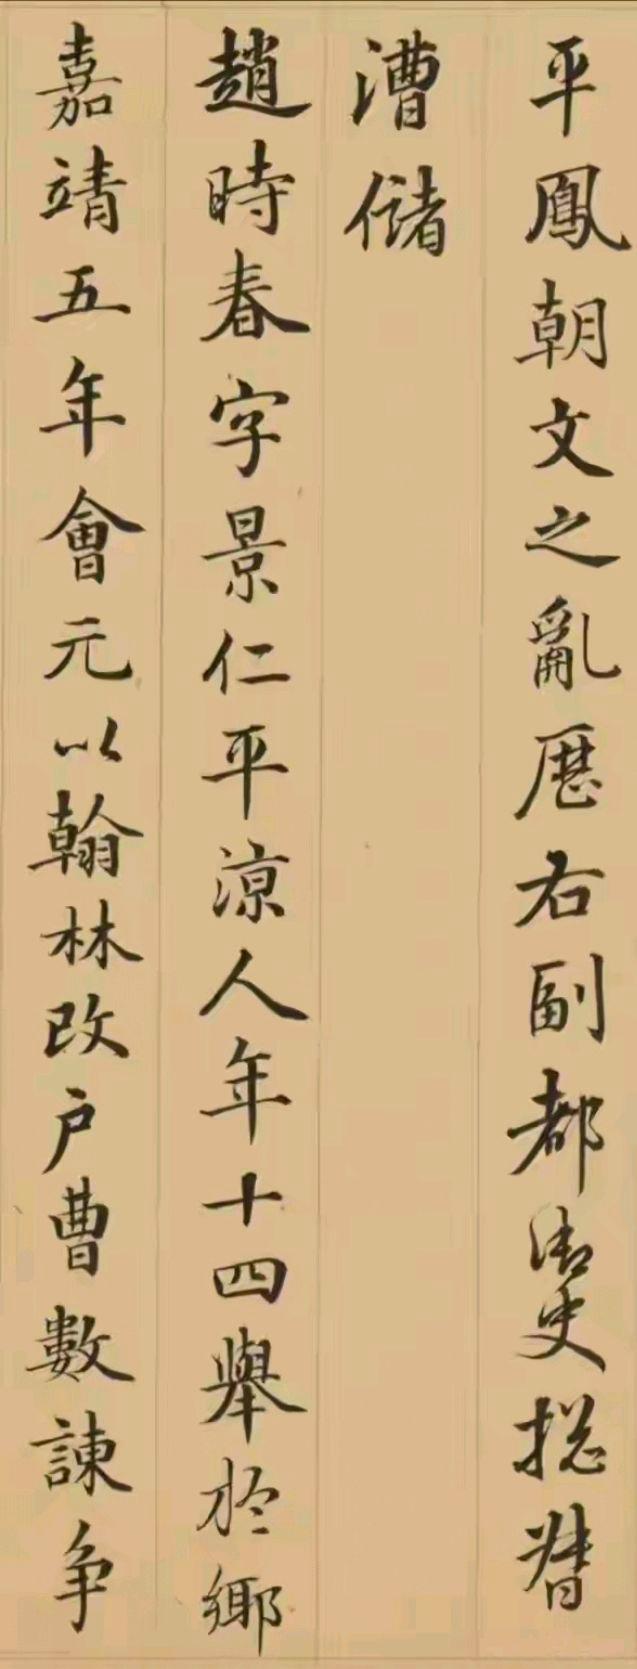 平鳳朝文之亂歷右副都御史総督
漕儲
趙時春字景仁平涼人年十四舉於鄉
嘉靖五年會元以翰林改戶曹數諫争